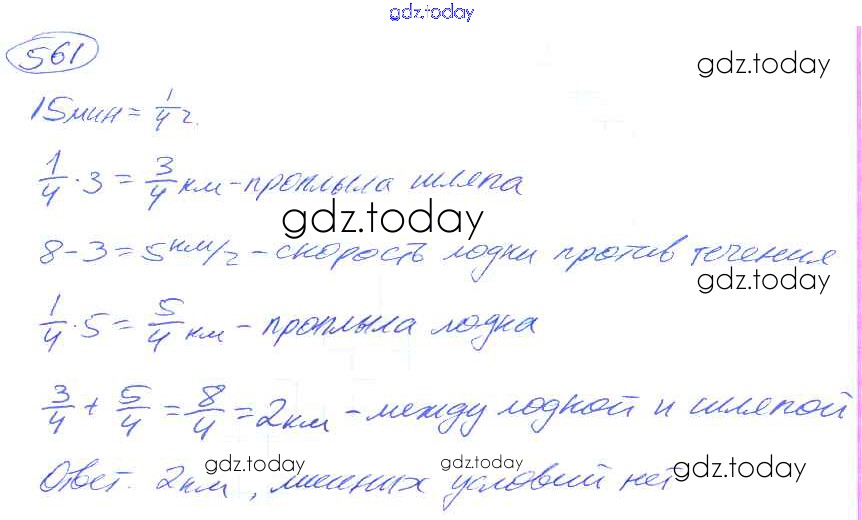 gdz.today
561
gdz.today
15мин = 1/4 ч.
1/4 · 3 = 3/4 км - проплыла шляпа
gdz.today
8 - 3 = 5 км/ч - скорость лодки против течения
gdz.today
1/4 · 5 = 5/4 км - проплыла лодка
3/4 + 5/4 = 8/4 = 2км - между лодкой и шляпой
gdz.today gdz.today gdz.today
Ответ. 2км, лишних условий нет